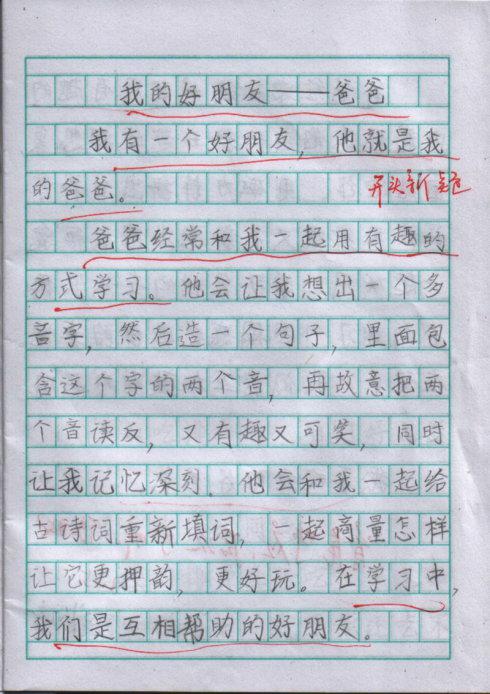 我的好朋友——爸爸
我有一个好朋友，他就是我
的爸爸。
开头新颖
爸爸经常和我一起用有趣的
方式学习。他会让我想出一个多
音字，然后造一个句子，里面包
含这个字的两个音，再故意把两
个音读反，又有趣又可笑，同时
让我记忆深刻。他会和我一起给
古诗词重新填词，一起商量怎样
让它更押韵，更好玩。在学习中，
我们是互相帮助的好朋友。